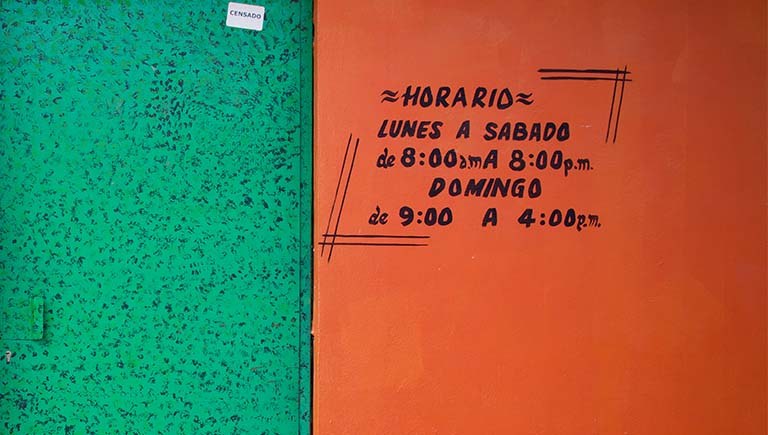 CENSADO
≈HORARIO≈
LUNES A SABADO
de 8:00a.m A 8:00p.m.
DOMINGO
de 9:00 A 4:00p.m.